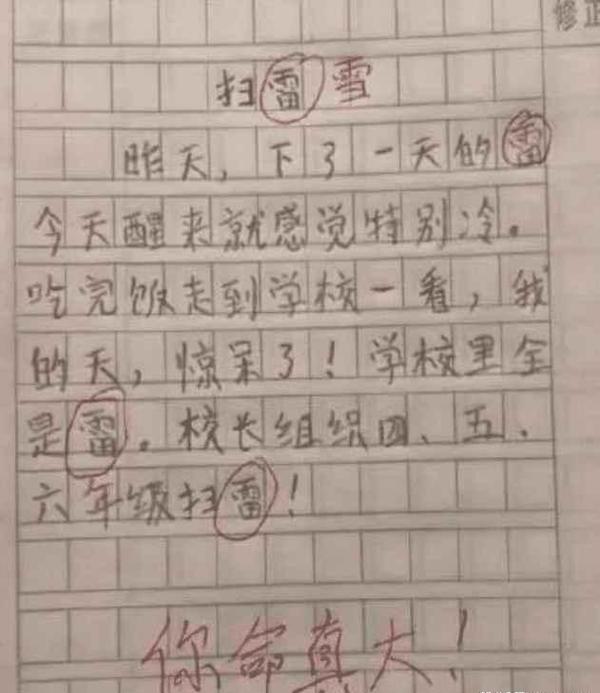 修正
扫雷雪
昨天，下了一天的雷
今天醒来就感觉特别冷。
吃完饭走到学校一看，我
的天，惊呆了！学校里全
是雷。校长组织四、五、
六年级扫雷！
你命真大！